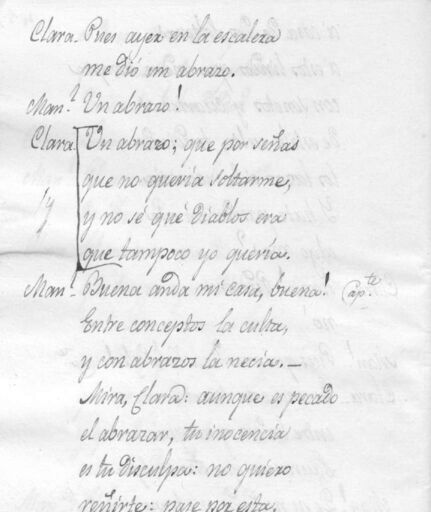 Clara. Pues ayer en la escalera
me dió un abrazo.
Man.l Un abrazo!
Clara. Un abrazo; que por señas
que no queria soltarme,
y no sé qué diablos era
que tampoco yo queria.
Man.l Buena anda mi casa, buena! ap.te
Entre conceptos la culta,
y con abrazos la necia. —
Mira, Clara: aunque es pecado
el abrazar, tu inocencia
es tu disculpa: no quiero
reñirte: pase por esta.